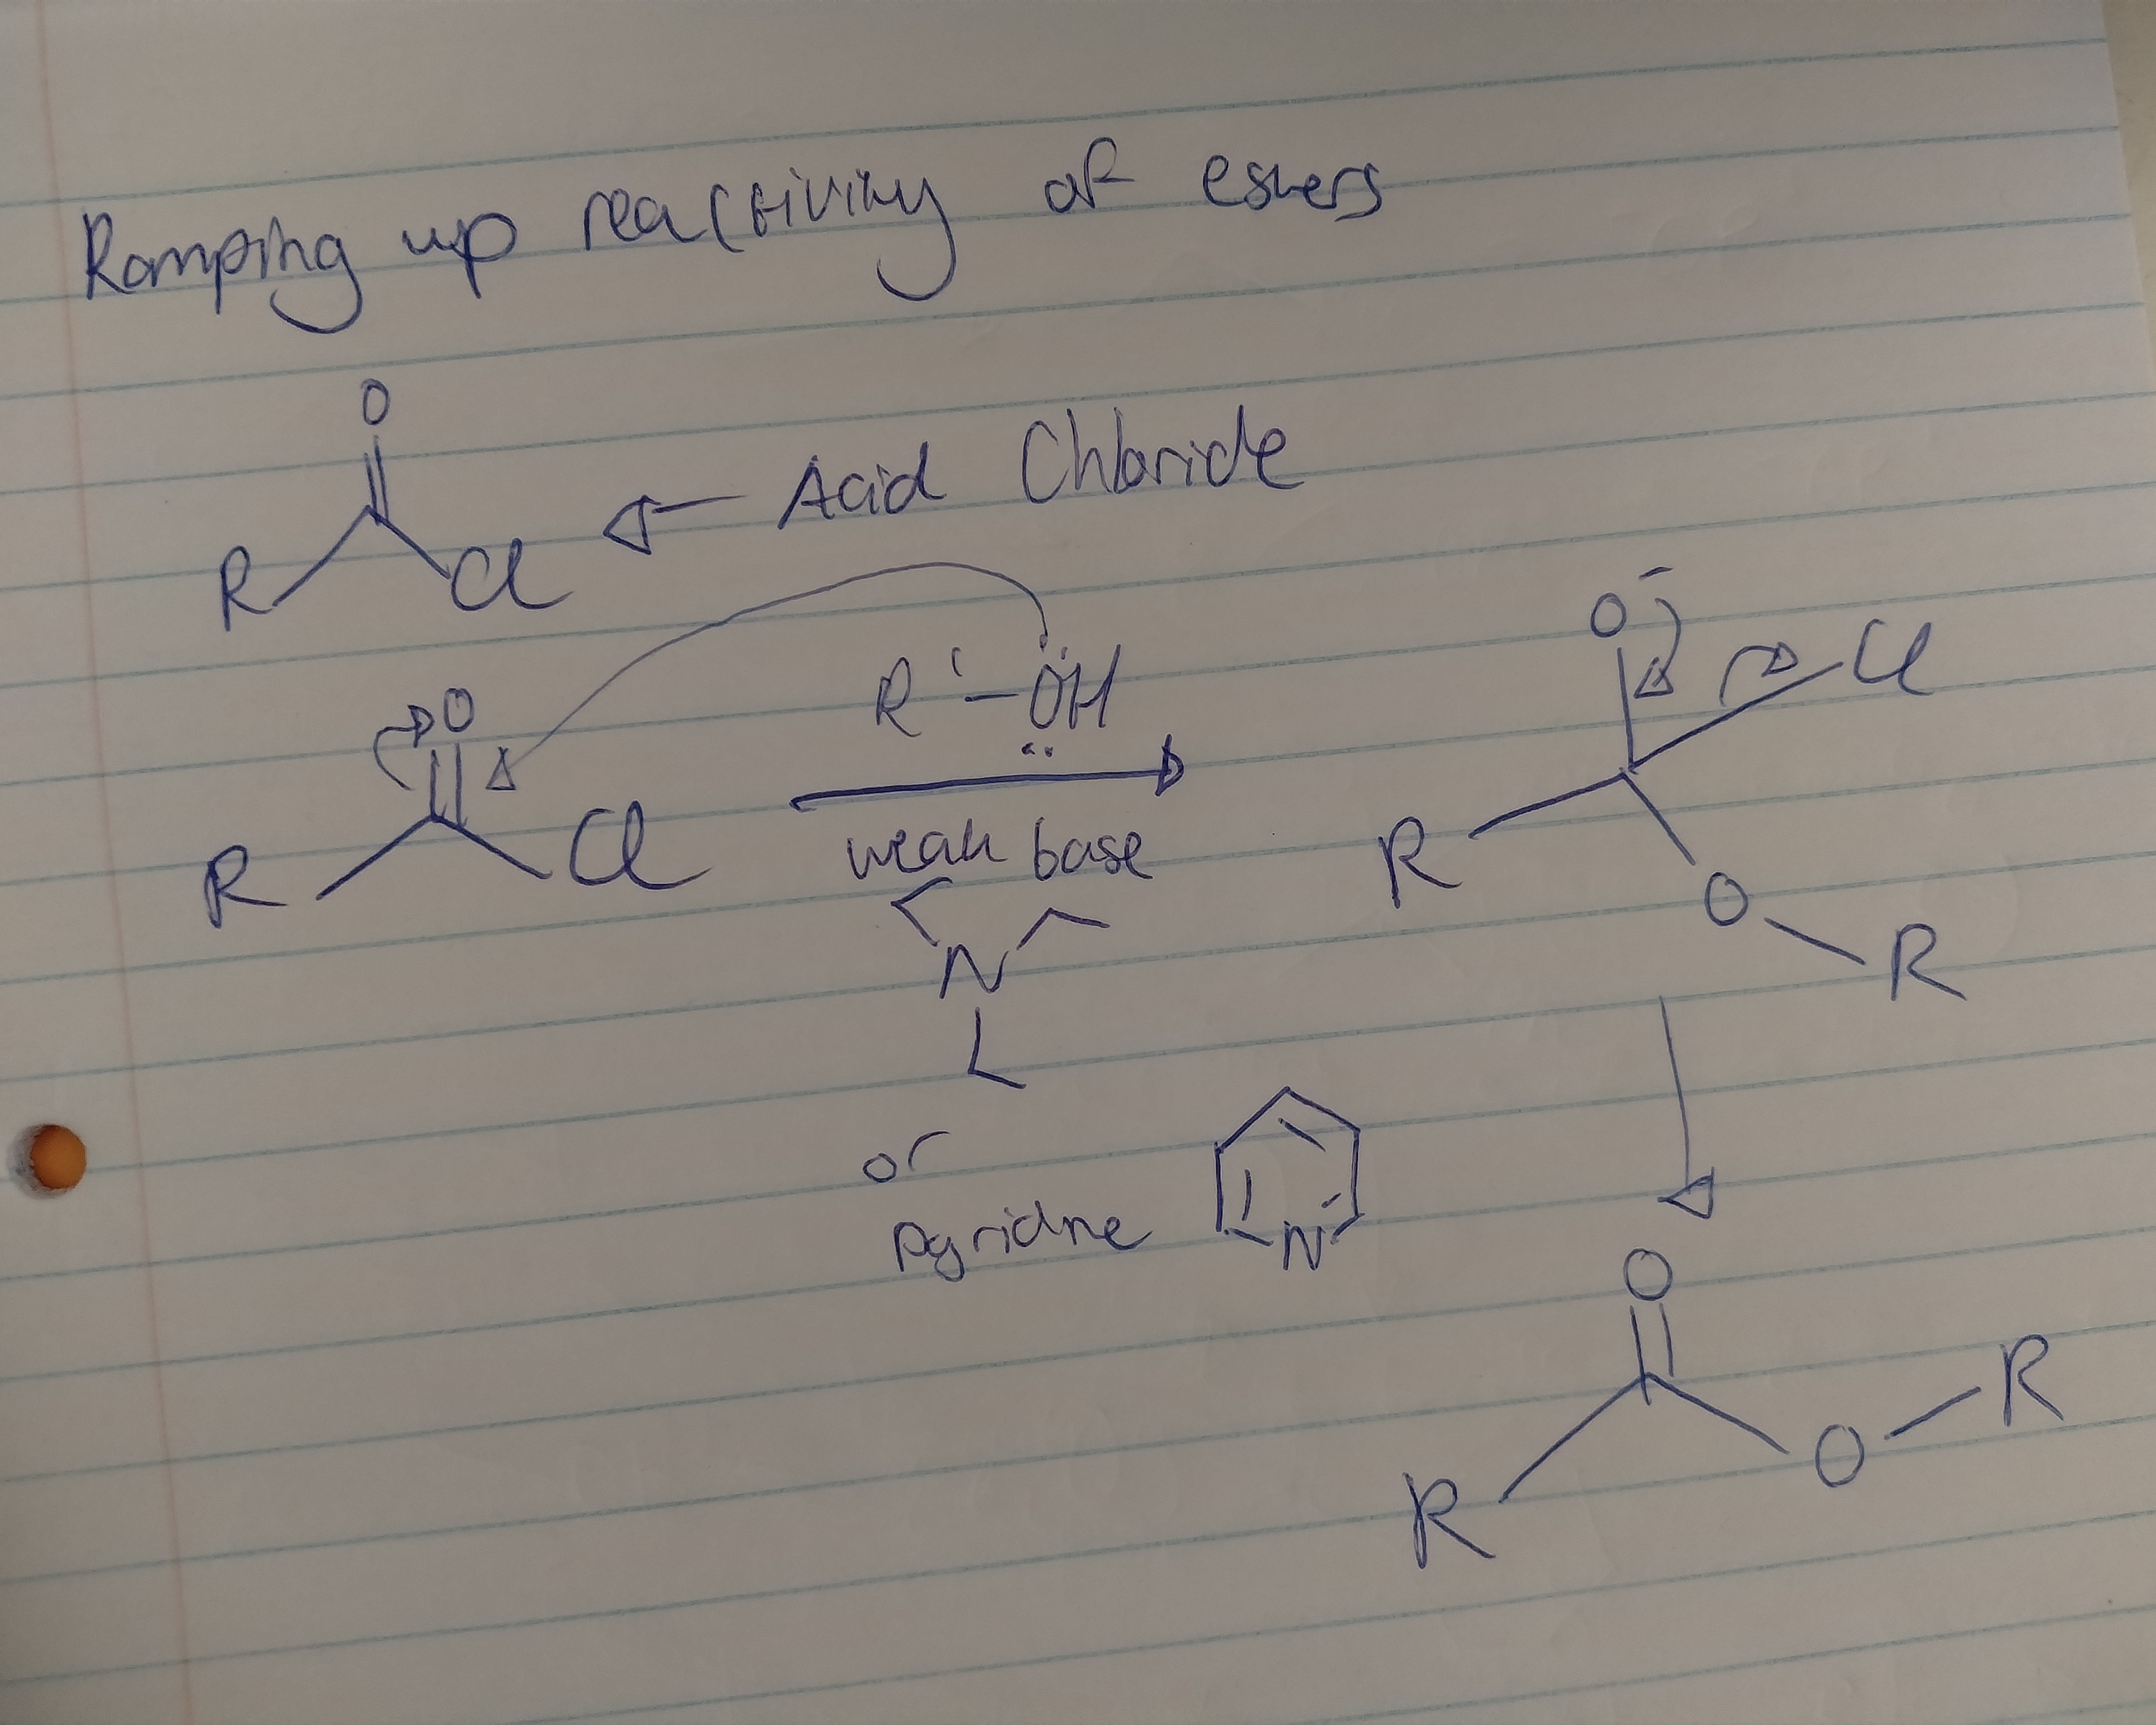 Ramping up reactivity of esters
O
R Cl ← Acid Chloride
O R'-ÖH O⁻ Cl
R Cl weak base R O R
N
or
pyridine N
O
R O R